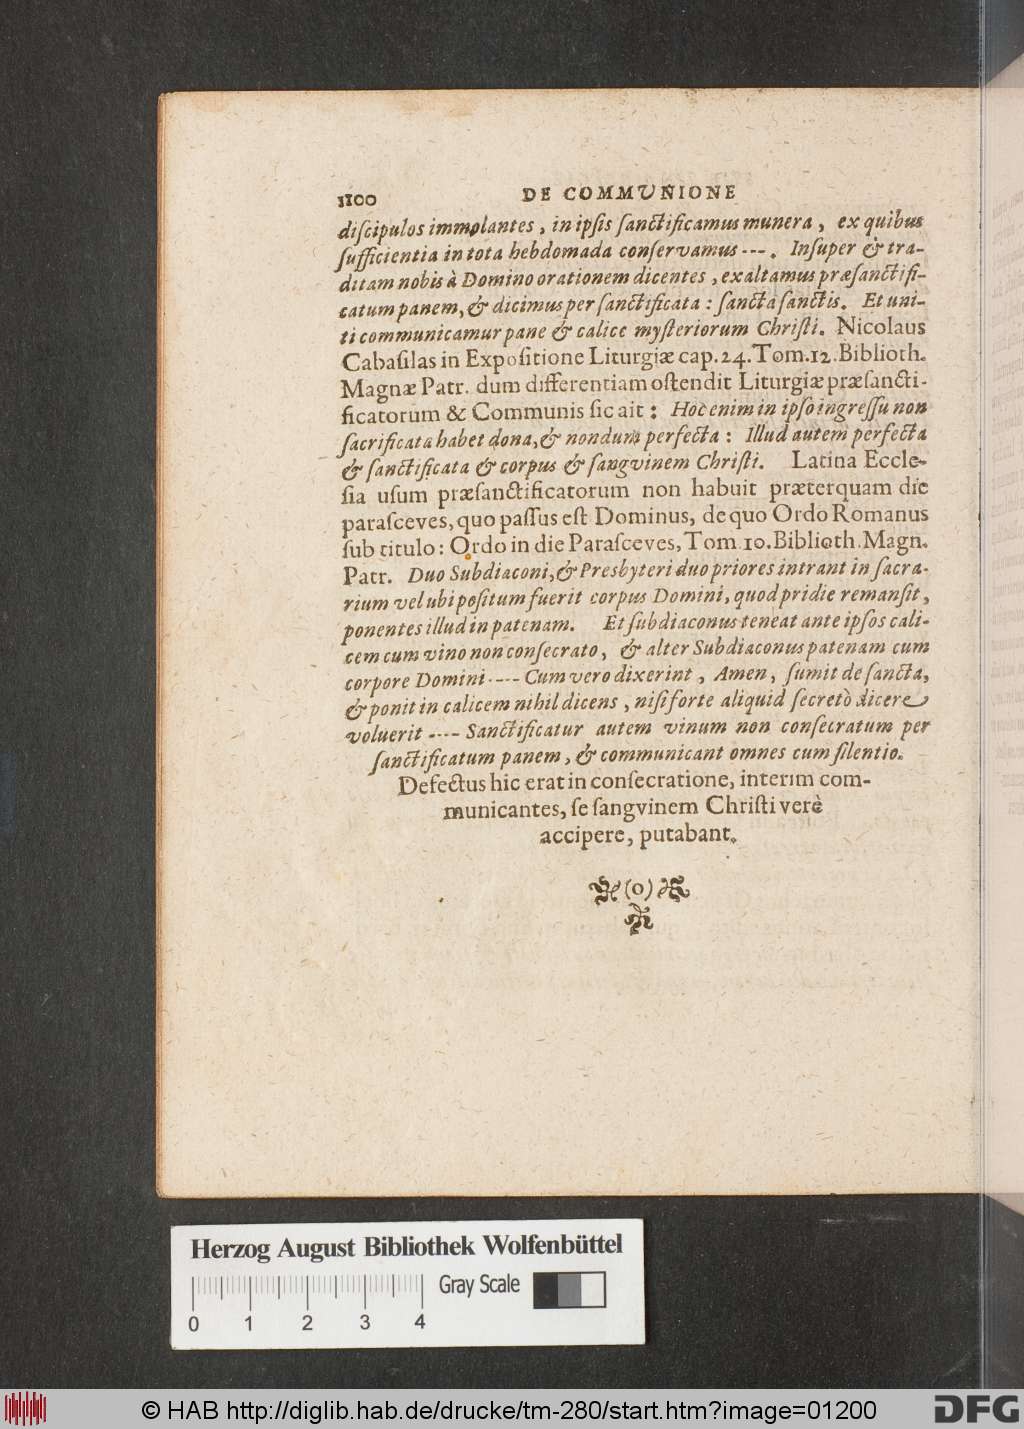 1100 DE COMMUNIONE
diſcipulos immolantes, in ipſis ſanctificamus munera, ex quibus
ſufficientia in tota hebdomada conſervamus ---. Inſuper & tra-
ditam nobis à Domino orationem dicentes, exaltamus præſanctifi-
catum panem, & dicimus per ſanctificata: ſancta ſanctis. Et uni-
ti communicamur pane & calice myſteriorum Chriſti. Nicolaus
Cabaſilas in Expoſitione Liturgiæ cap. 24. Tom. 12. Biblioth.
Magnæ Patr. dum differentiam oſtendit Liturgiæ præſancti-
ficatorum & Communis ſic ait: Hoc enim in ipſo ingreſſu non
ſacrificata habet dona, & nondum perfecta: Illud autem perfecta
& ſanctificata & corpus & ſangvinem Chriſti. Latina Eccle-
ſia uſum præſanctificatorum non habuit præterquam die
paraſceves, quo paſſus eſt Dominus, de quo Ordo Romanus
ſub titulo: Ordo in die Paraſceves, Tom. 10. Biblioth. Magn.
Patr. Duo Subdiaconi, & Presbyteri duo priores intrant in ſacra-
rium vel ubi poſitum fuerit corpus Domini, quod pridie remanſit,
ponentes illud in patenam. Et ſubdiaconus teneat ante ipſos cali-
cem cum vino non conſecrato, & alter Subdiaconus patenam cum
corpore Domini ---- Cum vero dixerint, Amen, ſumit de ſancta,
& ponit in calicem nihil dicens, niſi forte aliquid ſecretò dicere
voluerit ---- Sanctificatur autem vinum non conſecratum per
ſanctificatum panem, & communicant omnes cum ſilentio.
Defectus hic erat in conſecratione, interim com-
municantes, ſe ſangvinem Chriſti verè
accipere, putabant.
(o)
Herzog August Bibliothek Wolfenbüttel
Gray Scale
0 1 2 3 4
© HAB http://diglib.hab.de/drucke/tm-280/start.htm?image=01200
DFG